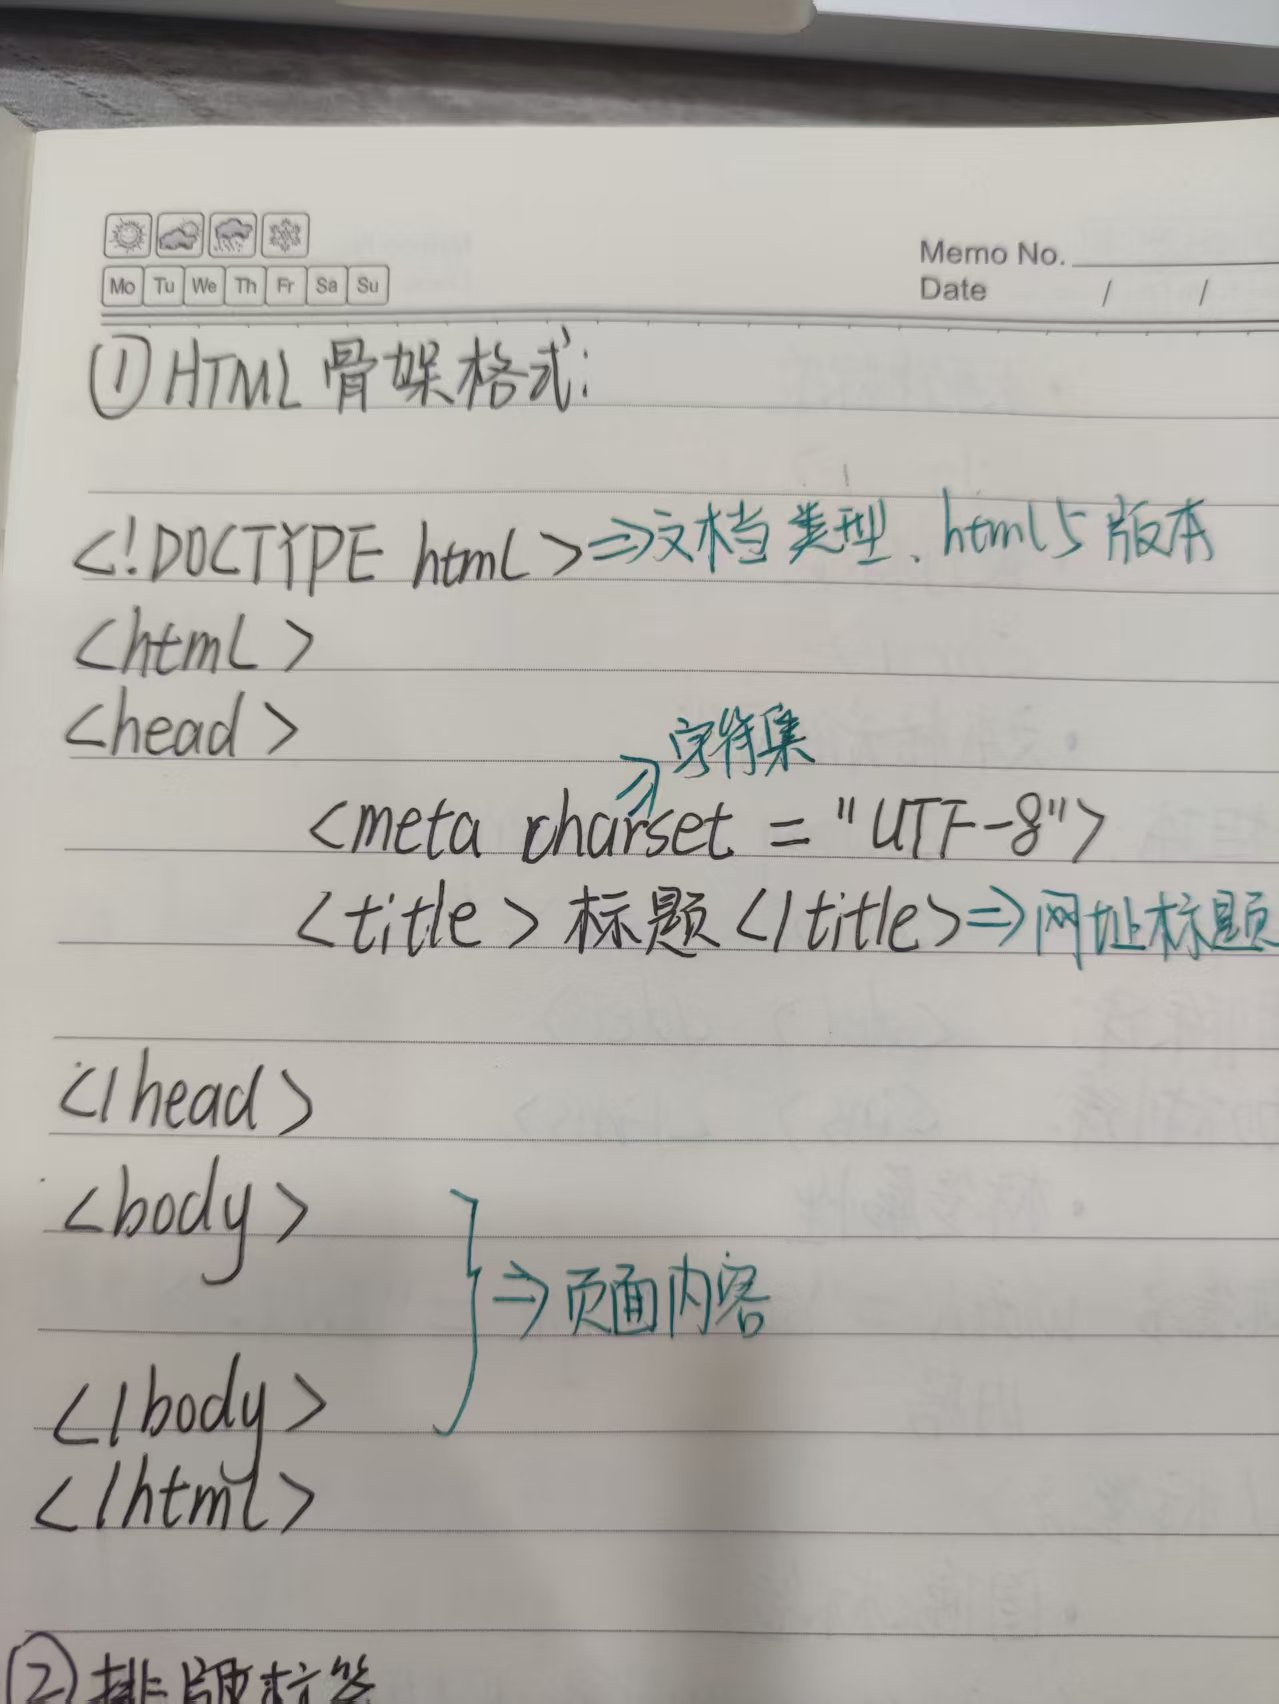 Memo No.
Mo Tu We Th Fr Sa Su
Date / /
①HTML 骨架格式:
<!DOCTYPE html>⇒文档类型、html5版本
<html>
<head>
字符集
<meta charset = "UTF-8">
<title>标题</title>⇒网址标题
</head>
<body>
⇒页面内容
</body>
</html>
②排版标签